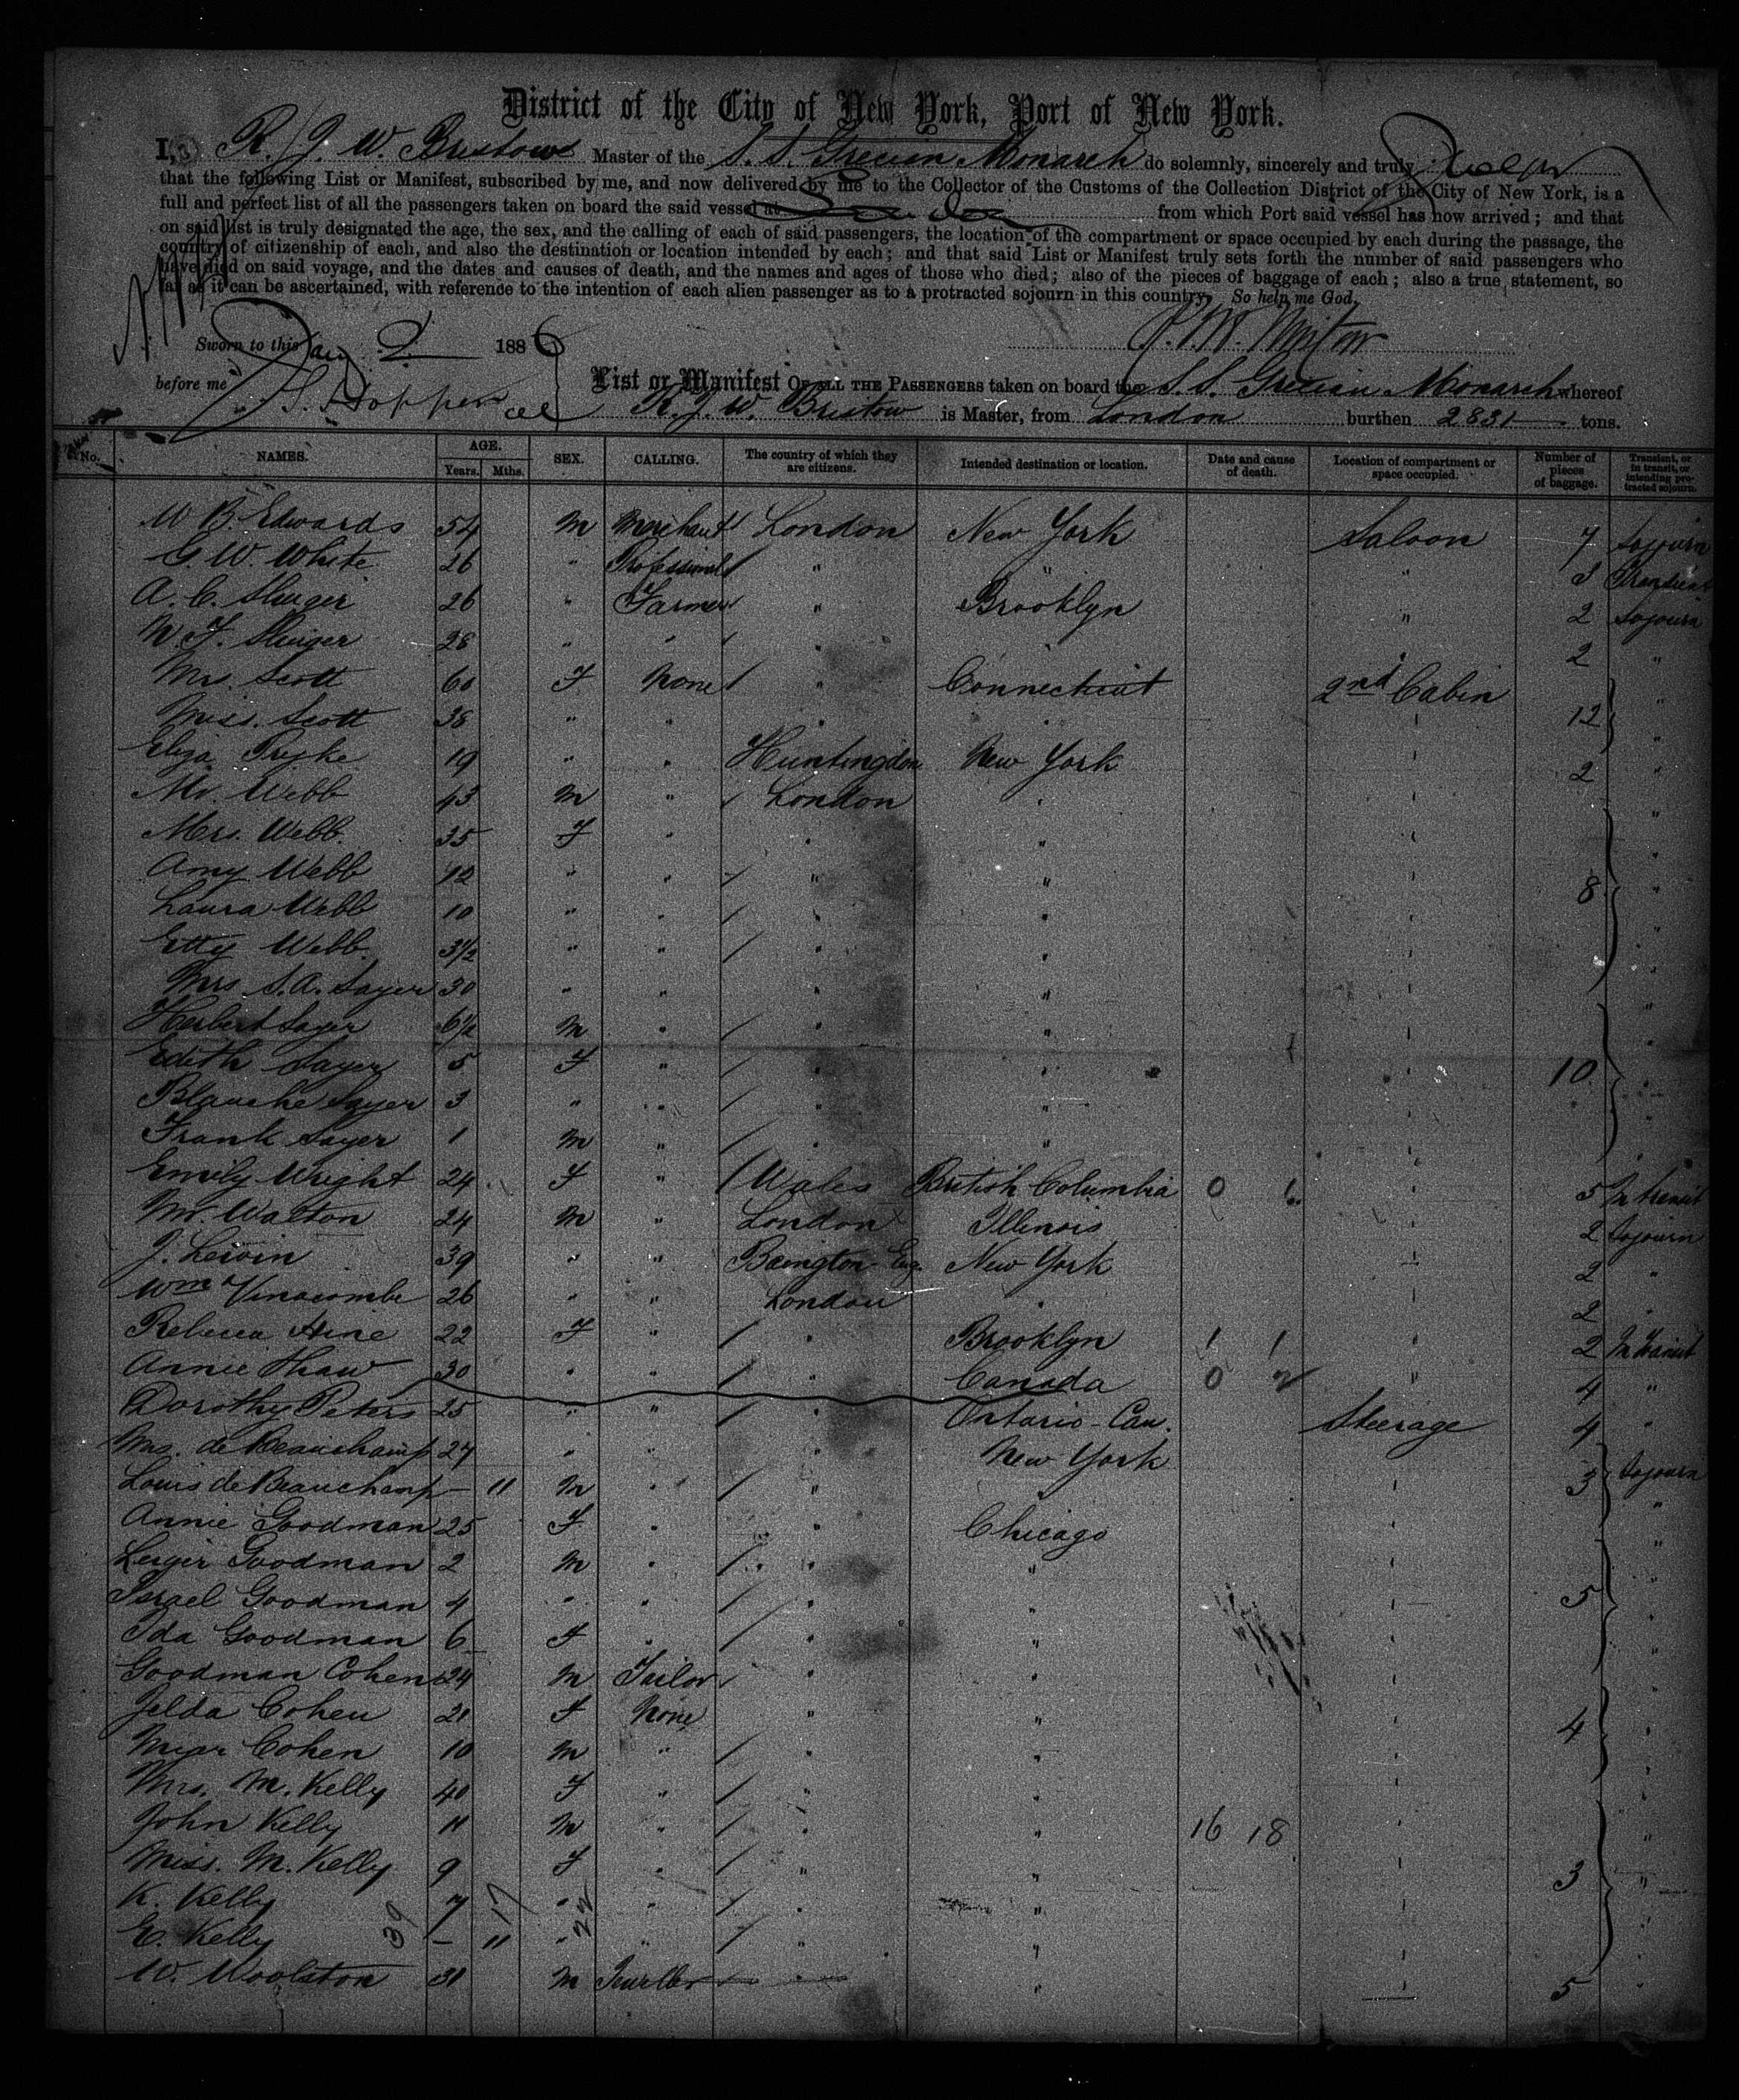 District of the City of New York, Port of New York.
I, R. J. W. Bristow Master of the S. S. Grecian Monarch do solemnly, sincerely and truly swear
that the following List or Manifest, subscribed by me, and now delivered by me to the Collector of the Customs of the Collection District of the City of New York, is a
full and perfect list of all the passengers taken on board the said vessel at London from which Port said vessel has now arrived; and that
on said list is truly designated the age, the sex, and the calling of each of said passengers, the location of the compartment or space occupied by each during the passage, the
country of citizenship of each, and also the destination or location intended by each; and that said List or Manifest truly sets forth the number of said passengers who
have died on said voyage, and the dates and causes of death, and the names and ages of those who died; also of the pieces of baggage of each; also a true statement, so
far as it can be ascertained, with reference to the intention of each alien passenger as to a protracted sojourn in this country. So help me God.
Sworn to this Jany 2 1886
before me S. Hopper
List or Manifest OF ALL THE PASSENGERS taken on board the S. S. Grecian Monarch whereof
R. J. W. Bristow is Master, from London burthen 2831 tons.
No. NAMES. AGE. Years. Mths. SEX. CALLING. The country of which they are citizens. Intended destination or location. Date and cause of death. Location of compartment or space occupied. Number of pieces of baggage. Transient, or in transit, or intending protracted sojourn.
W B. Edwards 54 M Merchant London New York Saloon 7 Sojourn
G. W. White 26 " Professional " " " 3 Transient
A. C. Slinger 26 " Farmer " Brooklyn " 2 Sojourn
W. F. Slinger 28 " " " " " 2 "
Mrs. Scott 60 F None " Connecticut 2nd Cabin "
Miss. Scott 38 " " " " " 12 "
Eliza Pryke 19 " " Huntingdon New York " 2 "
Mr. Webb 43 M " London " " "
Mrs. Webb. 35 F " " " " "
Amy Webb 12 " " " " " 8 "
Laura Webb 10 " " " " " "
Etty Webb. 3½ " " " " " "
Mrs S. A. Sayer 30 " " " " " "
Herbert Sayer 6½ M " " " " "
Edith Sayer 5 F " " " " 10 "
Blanche Sayer 3 " " " " " "
Frank Sayer 1 M " " " "
Emily Wright 24 F " Wales British Columbia 0 1 " 5 In transit
Mr. Walton 24 M " London Illinois " 2 Sojourn
J. Lewin 39 " " New York " 2 "
Wm Vinacombe 26 " " London " " 2 "
Rebecca Hine 22 F " " Brooklyn 1 1 " 2 In transit
Annie Shaw 30 " " " Canada 0 2 " 4 "
Dorothy Peters 25 " " " Ontario - Can. Steerage 4 "
Mrs. de Beauchamp 27 " " " New York Sojourn
Louis de Beauchamp — 11 M " " " " 3 "
Annie Goodman 25 F " " Chicago " "
Goodman 2 M " " " " "
Israel Goodman 4 " " " " " 5 "
Ida Goodman 6 F " " " " "
Goodman Cohen 24 M Tailor " " " "
Zelda Cohen 21 F None " " " 4 "
Cohen 10 M " " " " "
Mrs. M. Kelly 40 F " " " " "
John Kelly 11 M " " " 16 18 " "
Miss. M. Kelly 9 F " " " " 3 "
K. Kelly 7 " " " " " "
E. Kelly — 11 " " " " " "
39 17 22
W. Woolston 31 M Jeweller " " " 5 "